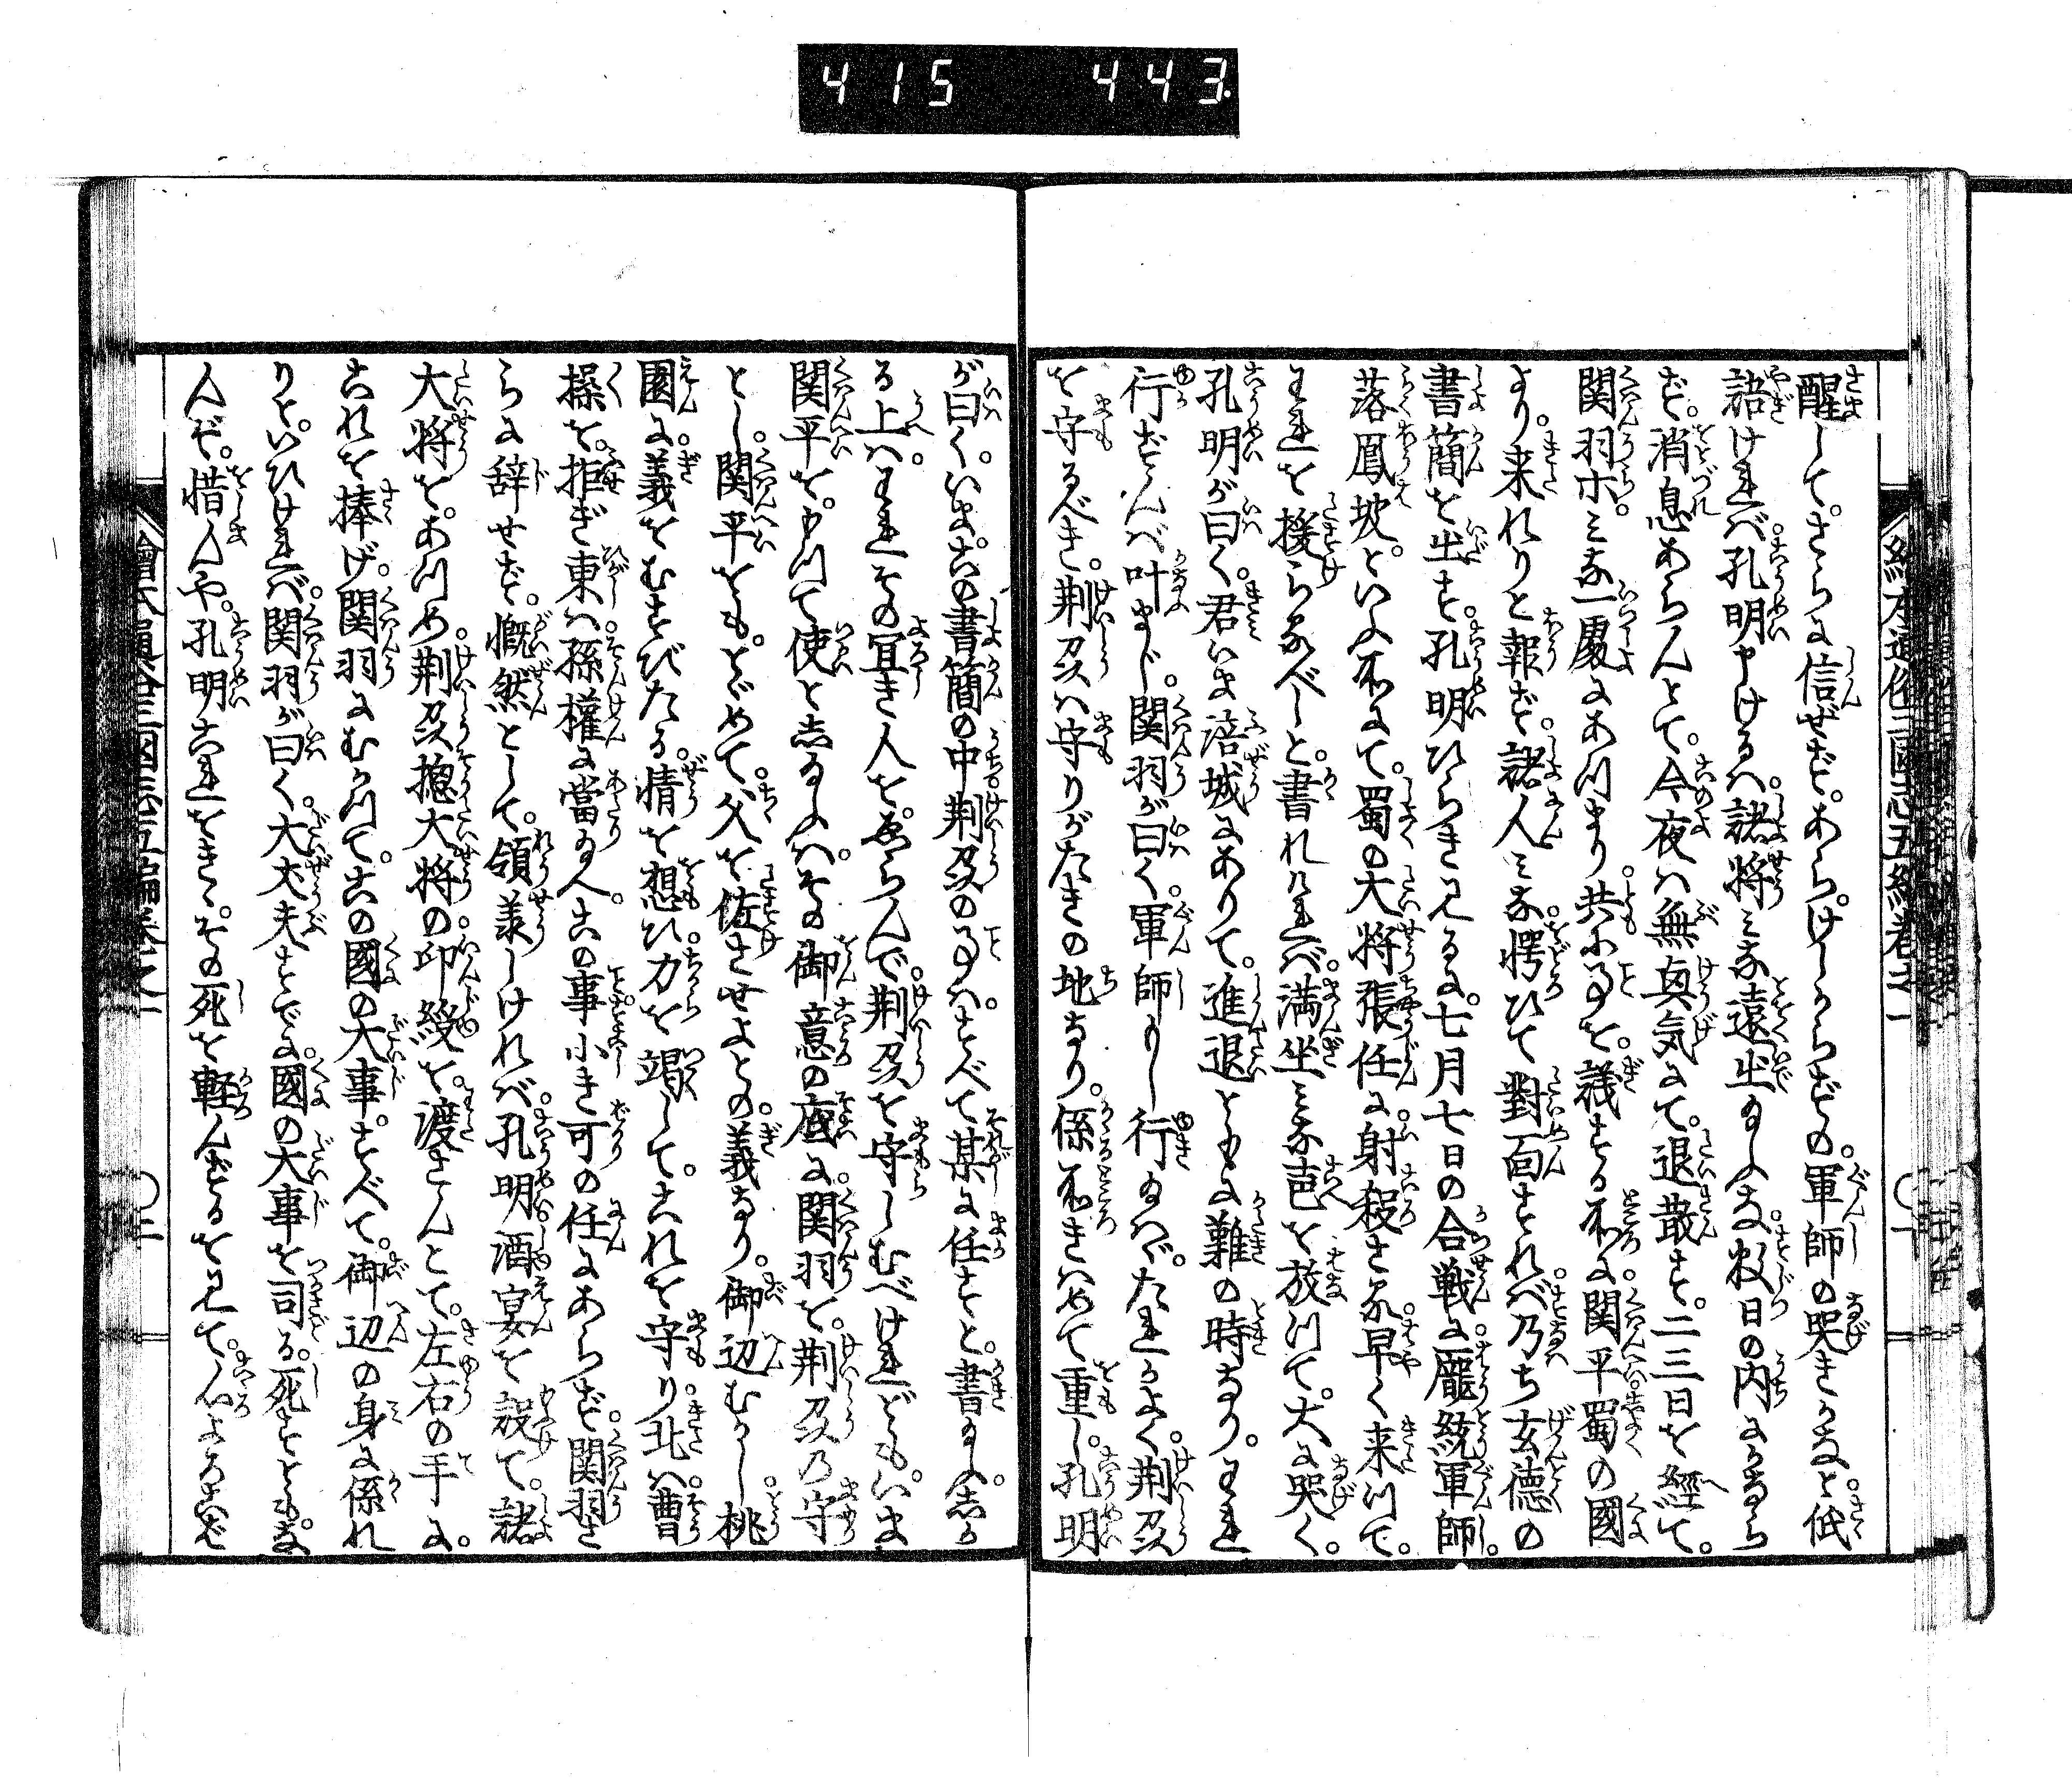 415 443
醒して。さらに信ぜず。あら。けしからずの。軍師の哭きかなと。低
語ければ。孔明申けるハ。諸将ミな遠出給ふな。数日の内にかなら
ず。消息あらんとて。今夜ハ無興気にて。退散す。二三日を經て。
関羽ホ。ミな一處にあつまり。共に事を。議する所に。関平蜀の國
より。来れりと報ず。諸人ミな。愕ひて對面すれバ。乃ち玄德の
書簡を出す。孔明ひらき見るに。七月七日の合戦に。龐統軍師。
落鳳坡。といふ所にて。蜀の大将張任に。射殺さる。早く来つて。
われを援らるべしと。書れけれバ。満坐ミな声を放つて。大に哭く。
孔明が曰く。君いま涪城にありて。進退ともに難の時なり。われ
行ずんバ叶まじ。関羽が曰く。軍師もし行給ハゞ。たれかよく。荆州
を守るべき。荆州ハ守りがたきの地なり。係所きハめて重し。孔明
が曰く。いまこの書簡の中。荆州の事ハ。すべて某に任すと。書給ふ。しか
る上ハ。われその宜き人を。ゑらんで。荆州を守しむべけれども。いま
関平を。もつて使としるふハ。その御意の底に。関羽を。荆州乃守
とし。関平をも。とゞめて。父を佐させよとの。義なり。御辺むかし。桃
園に。義をむすびたる。情を想ひ。力を竭して。これを守り。北ハ。曹
操を。拒ぎ東ハ。孫權に當給へ。この事小き可の任にあらず。関羽さ
らに辞せず。慨然として。領羕しけれバ。孔明酒宴を設て。諸
大将を。あつめ。荆州摠大将の。印綬を。渡さんとて。左右の手に。
これを捧げ。関羽にむかつて。この國の大事。すべて。御辺の身に係れ
りと。いひけれバ。関羽が曰く。大丈夫すでに。國の大事を司る。死すともな
んぞ。惜んや。孔明これをきゝ。その死を軽んずるを見て。心よろこバず